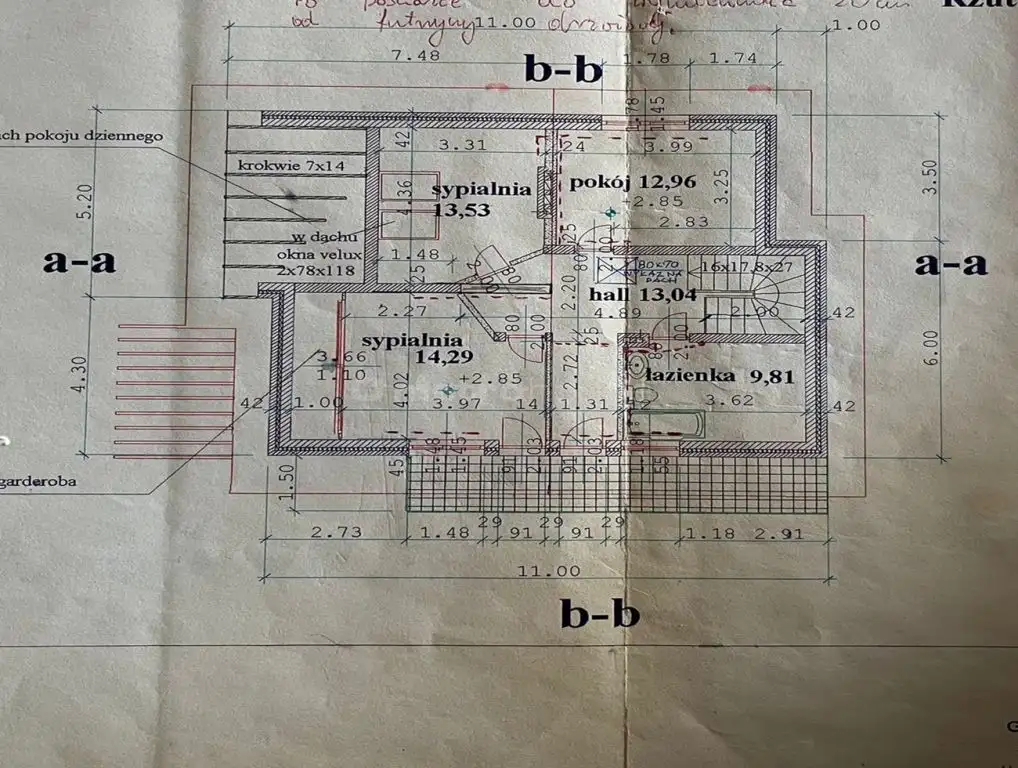 od futryny drzwiowej.
Rzut
11.00
1.00
7.48
1.78
1.74
b-b
1.78
1.45
ach pokoju dziennego
krokwie 7x14
42
3.31
24
3.99
5.20
4.36
sypialnia
13,53
pokój 12,96
+2.85
3.25
2.83
3.50
w dachu
okna velux
2x78x118
1.48
25
25
a-a
a-a
80
80
2.00
80x70
WYŁAZ NA
DACH
16x17,8x27
hall 13,04
2.20
4.89
2.00
42
2.27
80
2.00
25
80
2.00
6.00
sypialnia
14,29
3.66
1.10
4.30
4.02
+2.85
2.72
łazienka 9,81
42
1.00
3.97
14
1.31
12
3.62
42
garderoba
1.50
45
1.48
1.45
91
2.03
91
2.03
1.18
55
2.73
1.48
29
91
29
91
29
1.18
2.91
11.00
b-b
G